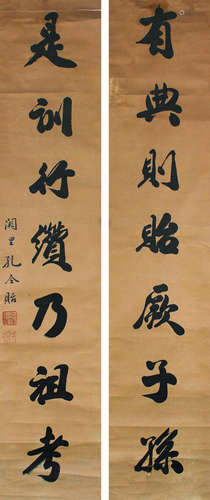 有典則貽厥子孫
是訓行纘乃祖考
闕里孔令貽